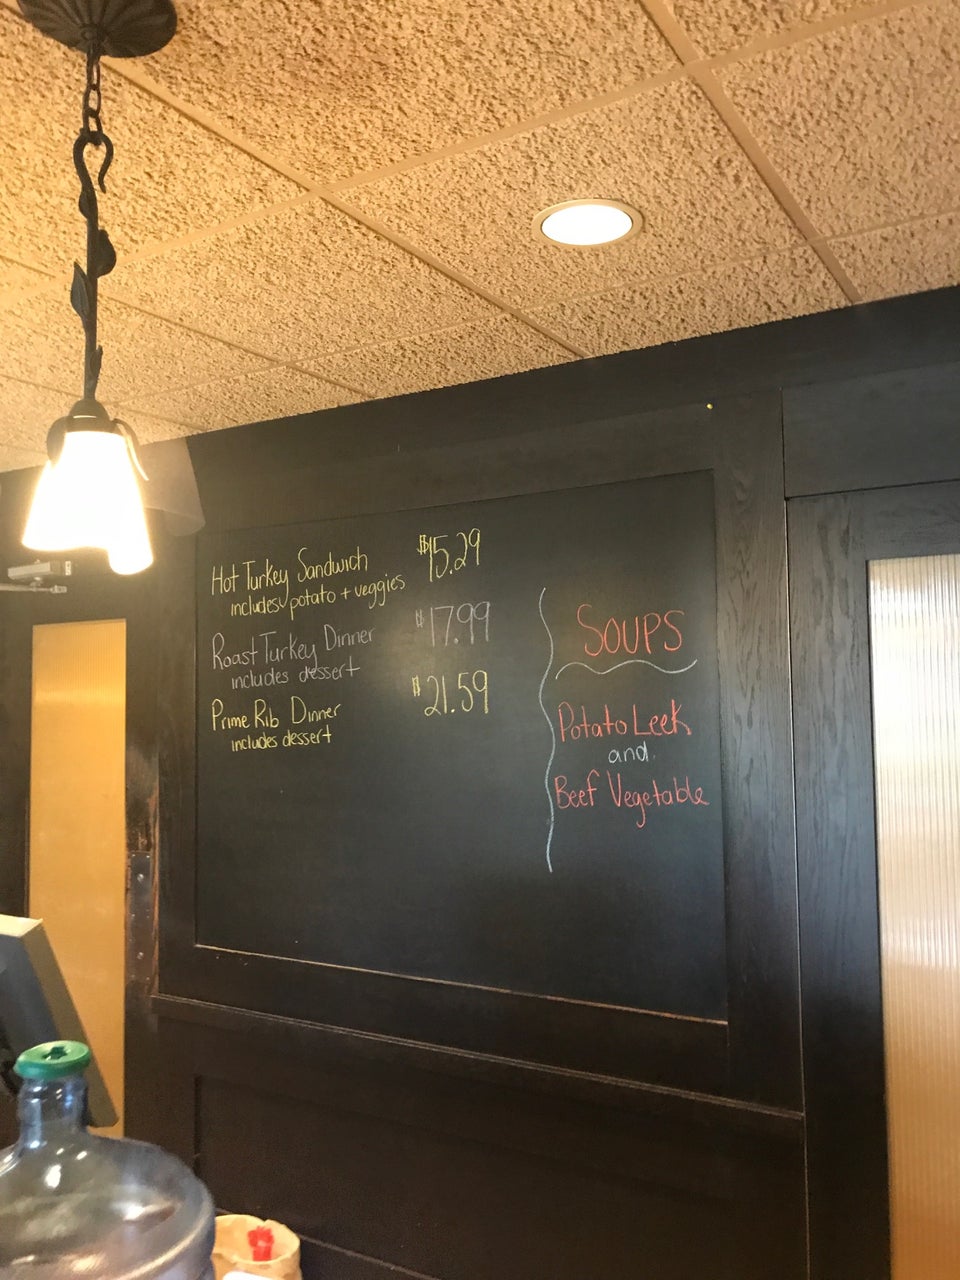 Hot Turkey Sandwich $15.29
includes potato + veggies
Roast Turkey Dinner $17.99
includes dessert
Prime Rib Dinner $21.59
includes dessert
SOUPS
Potato Leek
and
Beef Vegetable